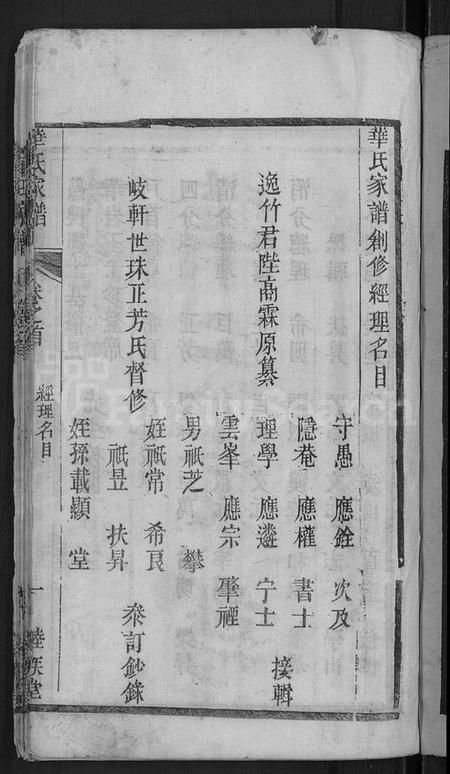 華氏家譜創修經理名目
守愚 應銓 次及
隱菴 應權 書士
逸竹君陛高霖原纂
理學 應遴 宁士
接輯
雲峯 應宗 肇禋
男祇芝 攀
岐軒世珠正芳氏督修
姪祇常 希良
祇昱 扶昇
叅訂鈔錄
姪孫載顯 堂
華氏家譜
卷之首
經理名目
一
睦族堂